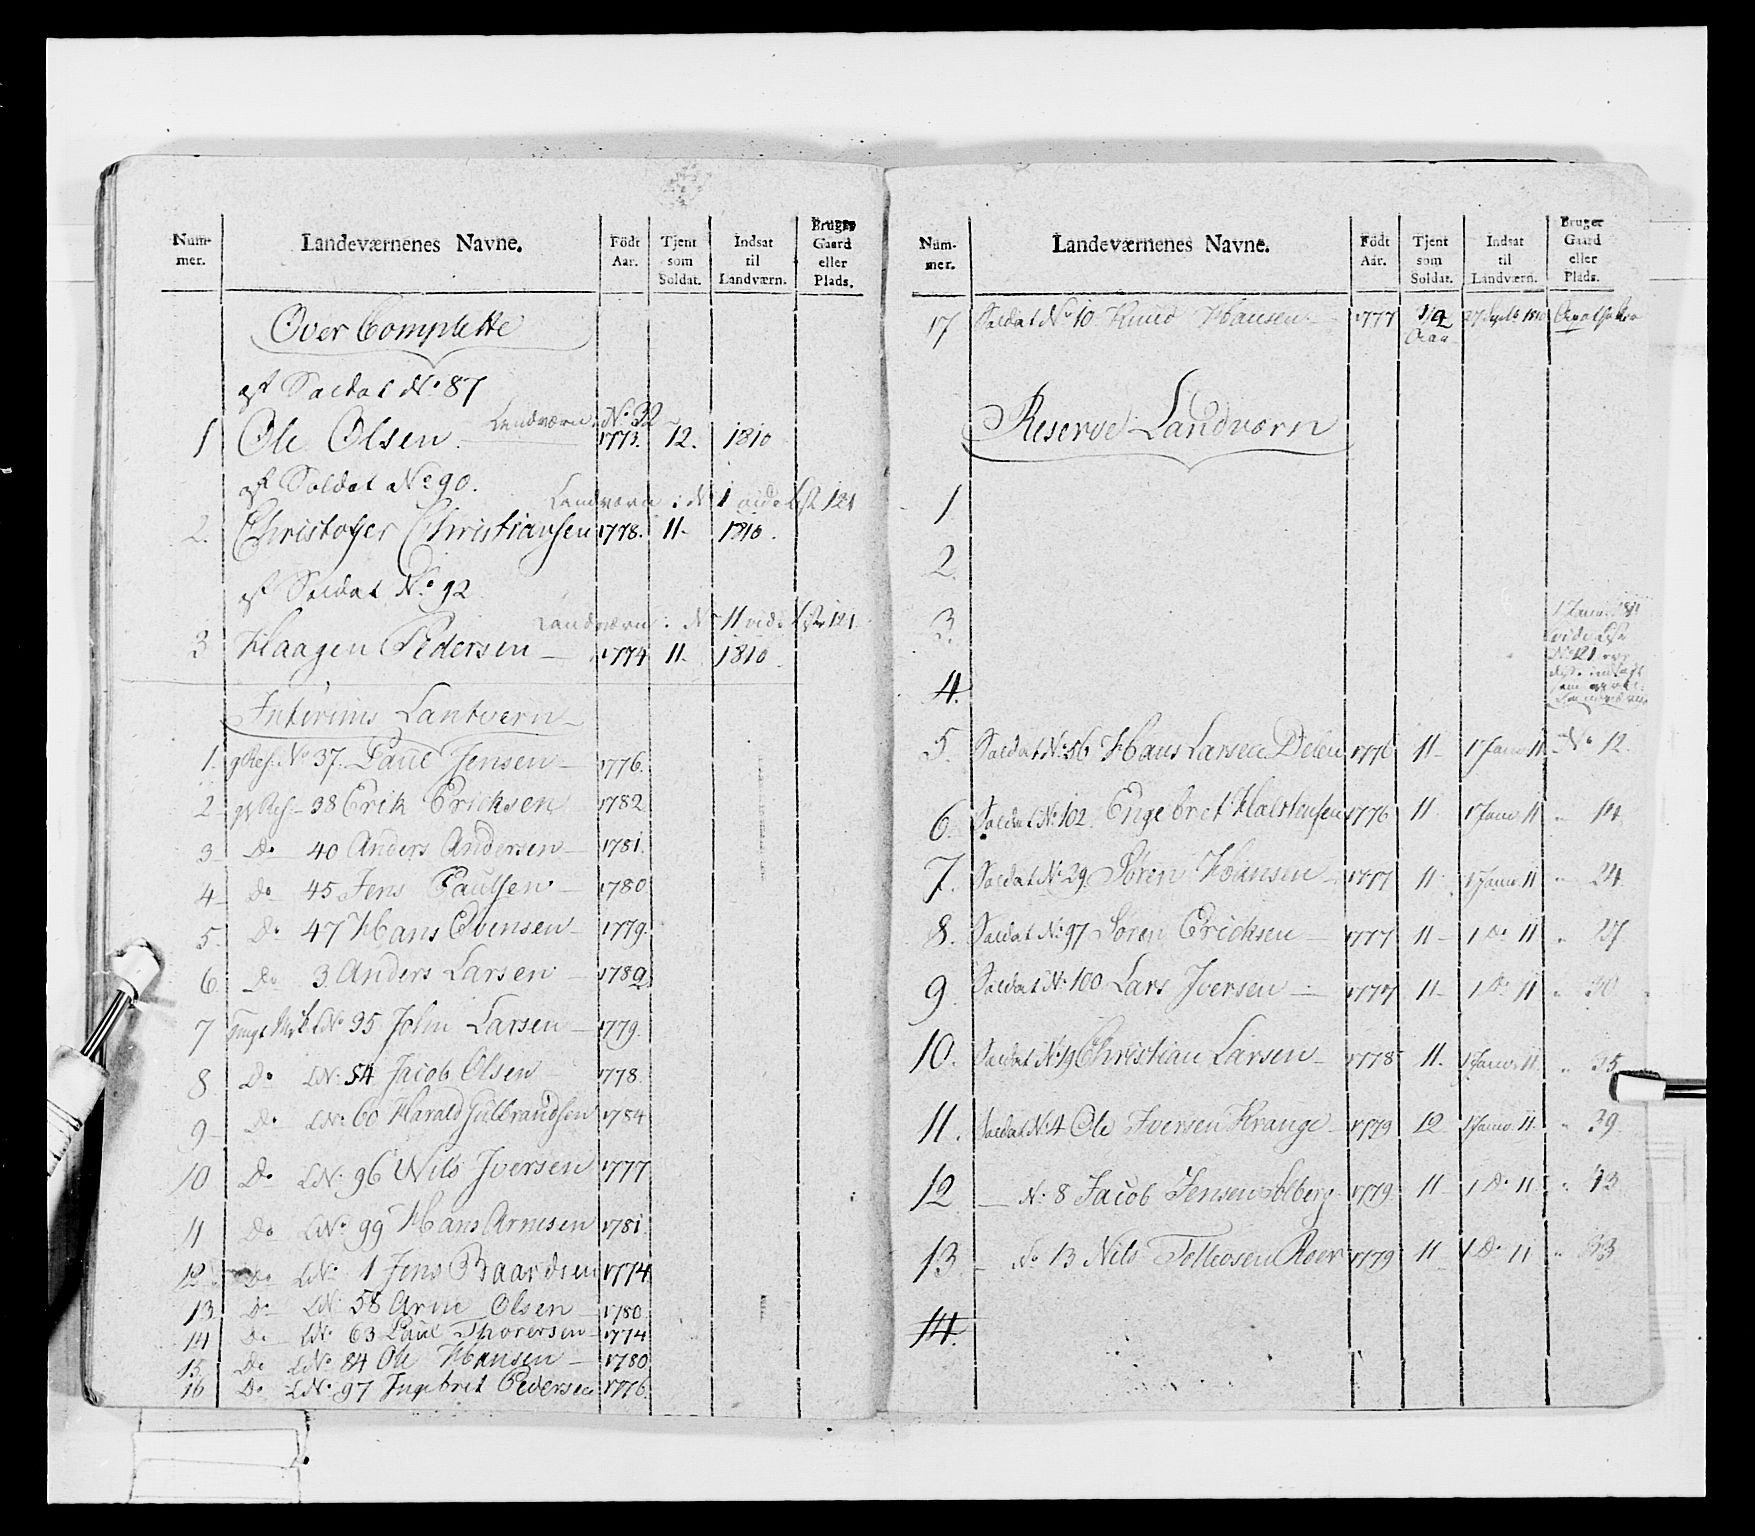 Num-
mer.
Landeværnenes Navne.
Födt
Aar.
Tjent
som
Soldat.
Indsat
til
Landværn.
Bruger
Gaard
eller
Plads.
Over Complette
Soldat No 87
Landværn No 32
1 Ole Olsen 1773. 12. 1810
Soldat No 90.
Landværn No 1 vide List 121
2. Christopher Christiansen 1778. 11 1810.
Soldat No 92
Landværn No 11 vide List 121
3 Haagen Pedersen 1774 11 1810
Interims Lantvern
1. No 37. Paul Jensen 1776.
2 38 Erik Ericksen 1782
3 Do 40 Anders Andersen 1781.
4 Do 45 Jens Paulsen 1780
5. Do 47 Hans Evensen 1779.
6 Do 3 Anders Larsen 1789
7 LNo 35 John Larsen 1779.
8 Do LNo 54 Jacob Olsen 1778.
9 Do LNo 60 Harald Gulbrandsen 1784
10 Do LNo 96 Nils Iversen 1777
11 Do LNo 99 Hans Arnesen 1781.
12 Do LNo 1 Jens Baardsen 1774
13 Do LNo 58 Arne Olsen 1780
14 Do LNo 63 Paul Thorersen 1774
15 Do LNo 84 Ole Hansen 1780
16 Do LNo 97 Ingebret Pedersen 1776.
Num-
mer.
Landeværnenes Navne.
Födt
Aar.
Tjent
som
Soldat.
Indsat
til
Landværn.
Bruger
Gaard
eller
Plads.
17 Soldat No 10 Knud Hansen 1777 1810
Reserve Landværn
1
2.
3.
4.
vide List
No 121
5. Soldat No 56 Hans Larsen Delen 1776 11 1 Janv 11 No 12
6. Soldat No 102 Engebret Halstensen 1776 11 1 Janv 11 " 14
7. Soldat No 29 Sören Hansen 1777 11 1 Janv 11 " 24
8. Soldat No 97 Sören Ericksen 1777 11 1 Do 11 " 27
9. Soldat No 100 Lars Iversen 1777 11 1 Do 11 " 30
10. Soldat No Christian Larsen 1778 11. 1 Janv. 11 " 35
11. Soldat No 4 Ole Iversen Krange 1779 12 1 Janv. 11 " 39
12 No 8 Jacob Jensen Solberg 1779 11 1 Do 11 "
13 No 13 Nils Tollevsen Roer 1779 11 1 Do 11 "
14.